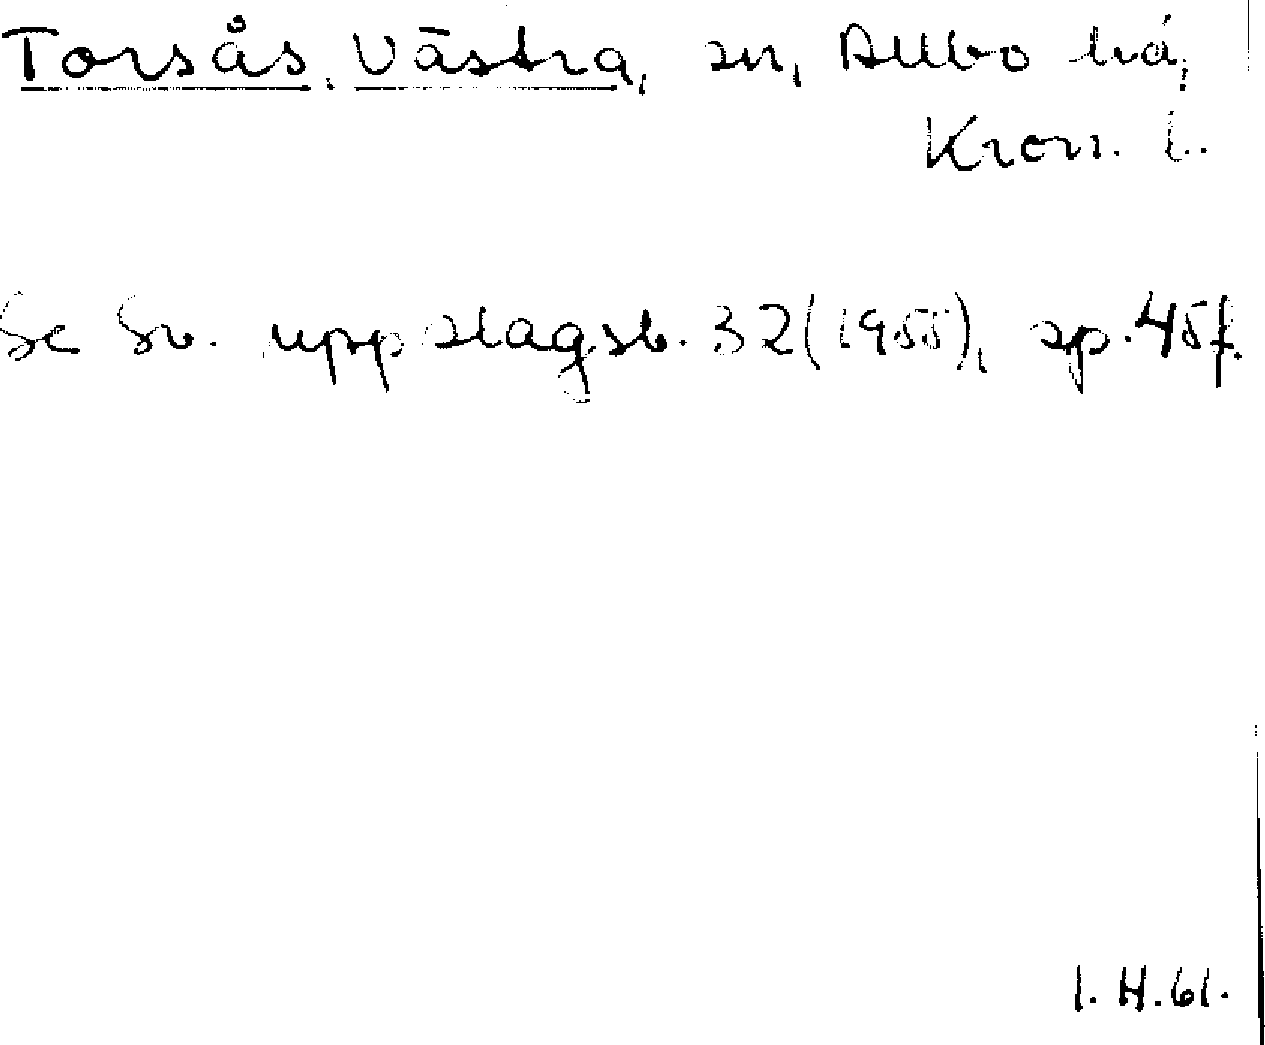 Torsås, Västra, sn, Allbo hd,
Kron. l.
Se Sv. uppslagsb. 32 (1955), sp. 45 f.
I. H. 61.